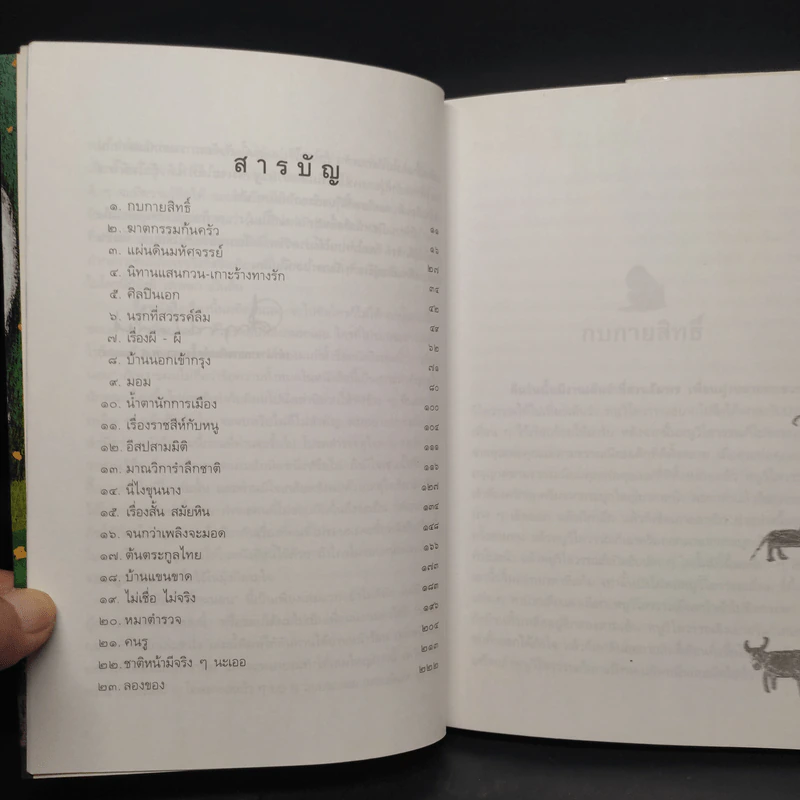 สารบัญ
๑. กบกายสิทธิ์ ๑๑
๒. ฆาตกรรมก้นครัว ๑๖
๓. แผ่นดินมหัศจรรย์ ๒๗
๔. นิทานแสนกวน-เกาะร้างทางรัก ๓๔
๕. ศิลปินเอก ๔๒
๖. นรกที่สวรรค์ลืม ๔๙
๗. เรื่องผี - ผี ๖๒
๘. บ้านนอกเข้ากรุง ๗๑
๙. มอม ๘๐
๑๐. น้ำตานักการเมือง ๑๐๐
๑๑. เรื่องราชสีห์กับหนู ๑๐๔
๑๒. อีสปสามมิติ ๑๑๑
๑๓. มาณวิการำลึกชาติ ๑๑๖
๑๔. นี่ไงขุนนาง ๑๒๗
๑๕. เรื่องสั้น สมัยหิน ๑๓๔
๑๖. จนกว่าเพลิงจะมอด ๑๔๘
๑๗. ต้นตระกูลไทย ๑๖๖
๑๘. บ้านแขนขาด ๑๗๓
๑๙. ไม่เชื่อ ไม่จริง ๑๘๓
๒๐. หมาตำรวจ ๑๙๖
๒๑. คนรู ๒๐๔
๒๒. ชาติหน้ามีจริง ๆ นะเออ ๒๑๓
๒๓. ลองของ ๒๒๒
กบกายสิทธิ์